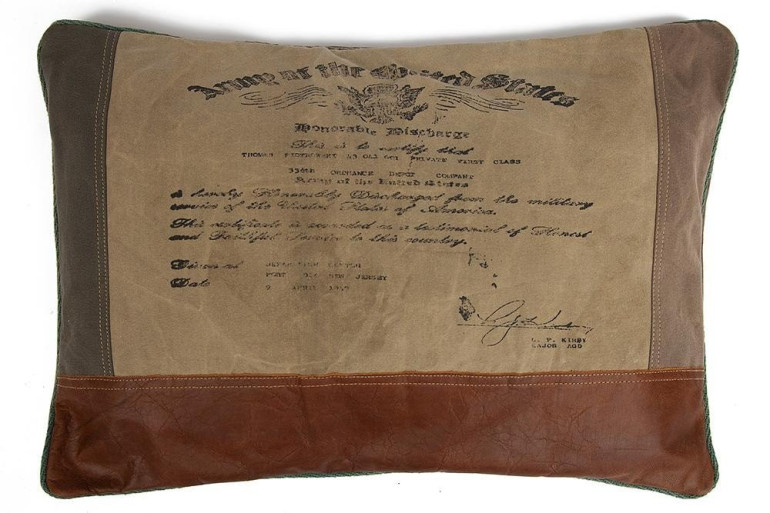 Army of the United States
Honorable Discharge
This is to certify that
THOMAS PRIVATE FIRST CLASS
ORDNANCE DEPOT COMPANY
Army of the United States
is hereby Honorably Discharged from the military
service of the United States of America.
This certificate is awarded as a testimonial of Honest
and Service to this country.
Given at SEPARATION CENTER
FORT DIX NEW JERSEY
Date APRIL
KIRBY
MAJOR AGD